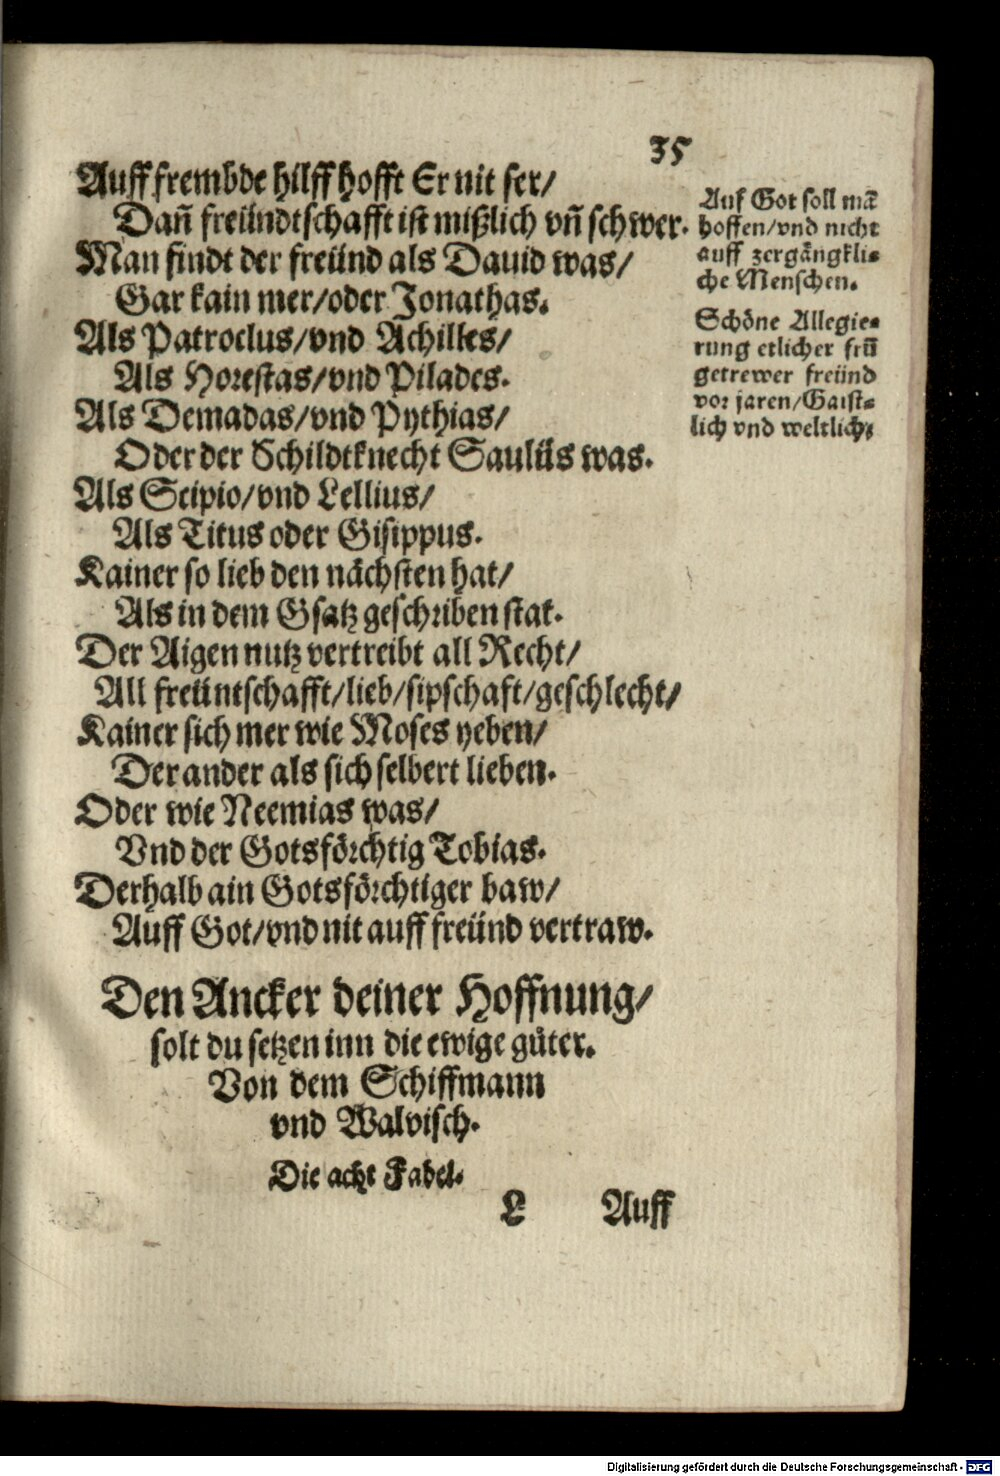 35
Auff frembde hilff hofft Er nit ser/
Dañ freündtschafft ist mißlich vñ schwer.
Man findt der freünd als Dauid was/
Gar kain mer/oder Jonathas.
Als Patroclus/vnd Achilles/
Als Horestas/vnd Pilades.
Als Demadas/vnd Pythias/
Oder der Schildtknecht Saulüs was.
Als Scipio/vnd Lellius/
Als Titus oder Gisippus.
Kainer so lieb den nächsten hat/
Als in dem Gsatz geschriben stat.
Der Aigen nutz vertreibt all Recht/
All freüntschafft/lieb/sipschaft/geschlecht/
Kainer sich mer wie Moses yeben/
Der ander als sich selbert lieben.
Oder wie Neemias was/
Vnd der Gotsförchtig Tobias.
Derhalb ain Gotsförchtiger baw/
Auff Got/vnd nit auff freünd vertraw.
Auf Got soll mā
hoffen/vnd nicht
auff zergängkli-
che Menschen.
Schöne Allegie-
rung etlicher frū
getrewer freünd
vor jaren/Gaist-
lich vnd weltlich/
Den Ancker deiner Hoffnung/
solt du setzen inn die ewige güter.
Von dem Schiffmann
vnd Walvisch.
Die acht Fabel.
L Auff
Digitalisierung gefördert durch die Deutsche Forschungsgemeinschaft - DFG